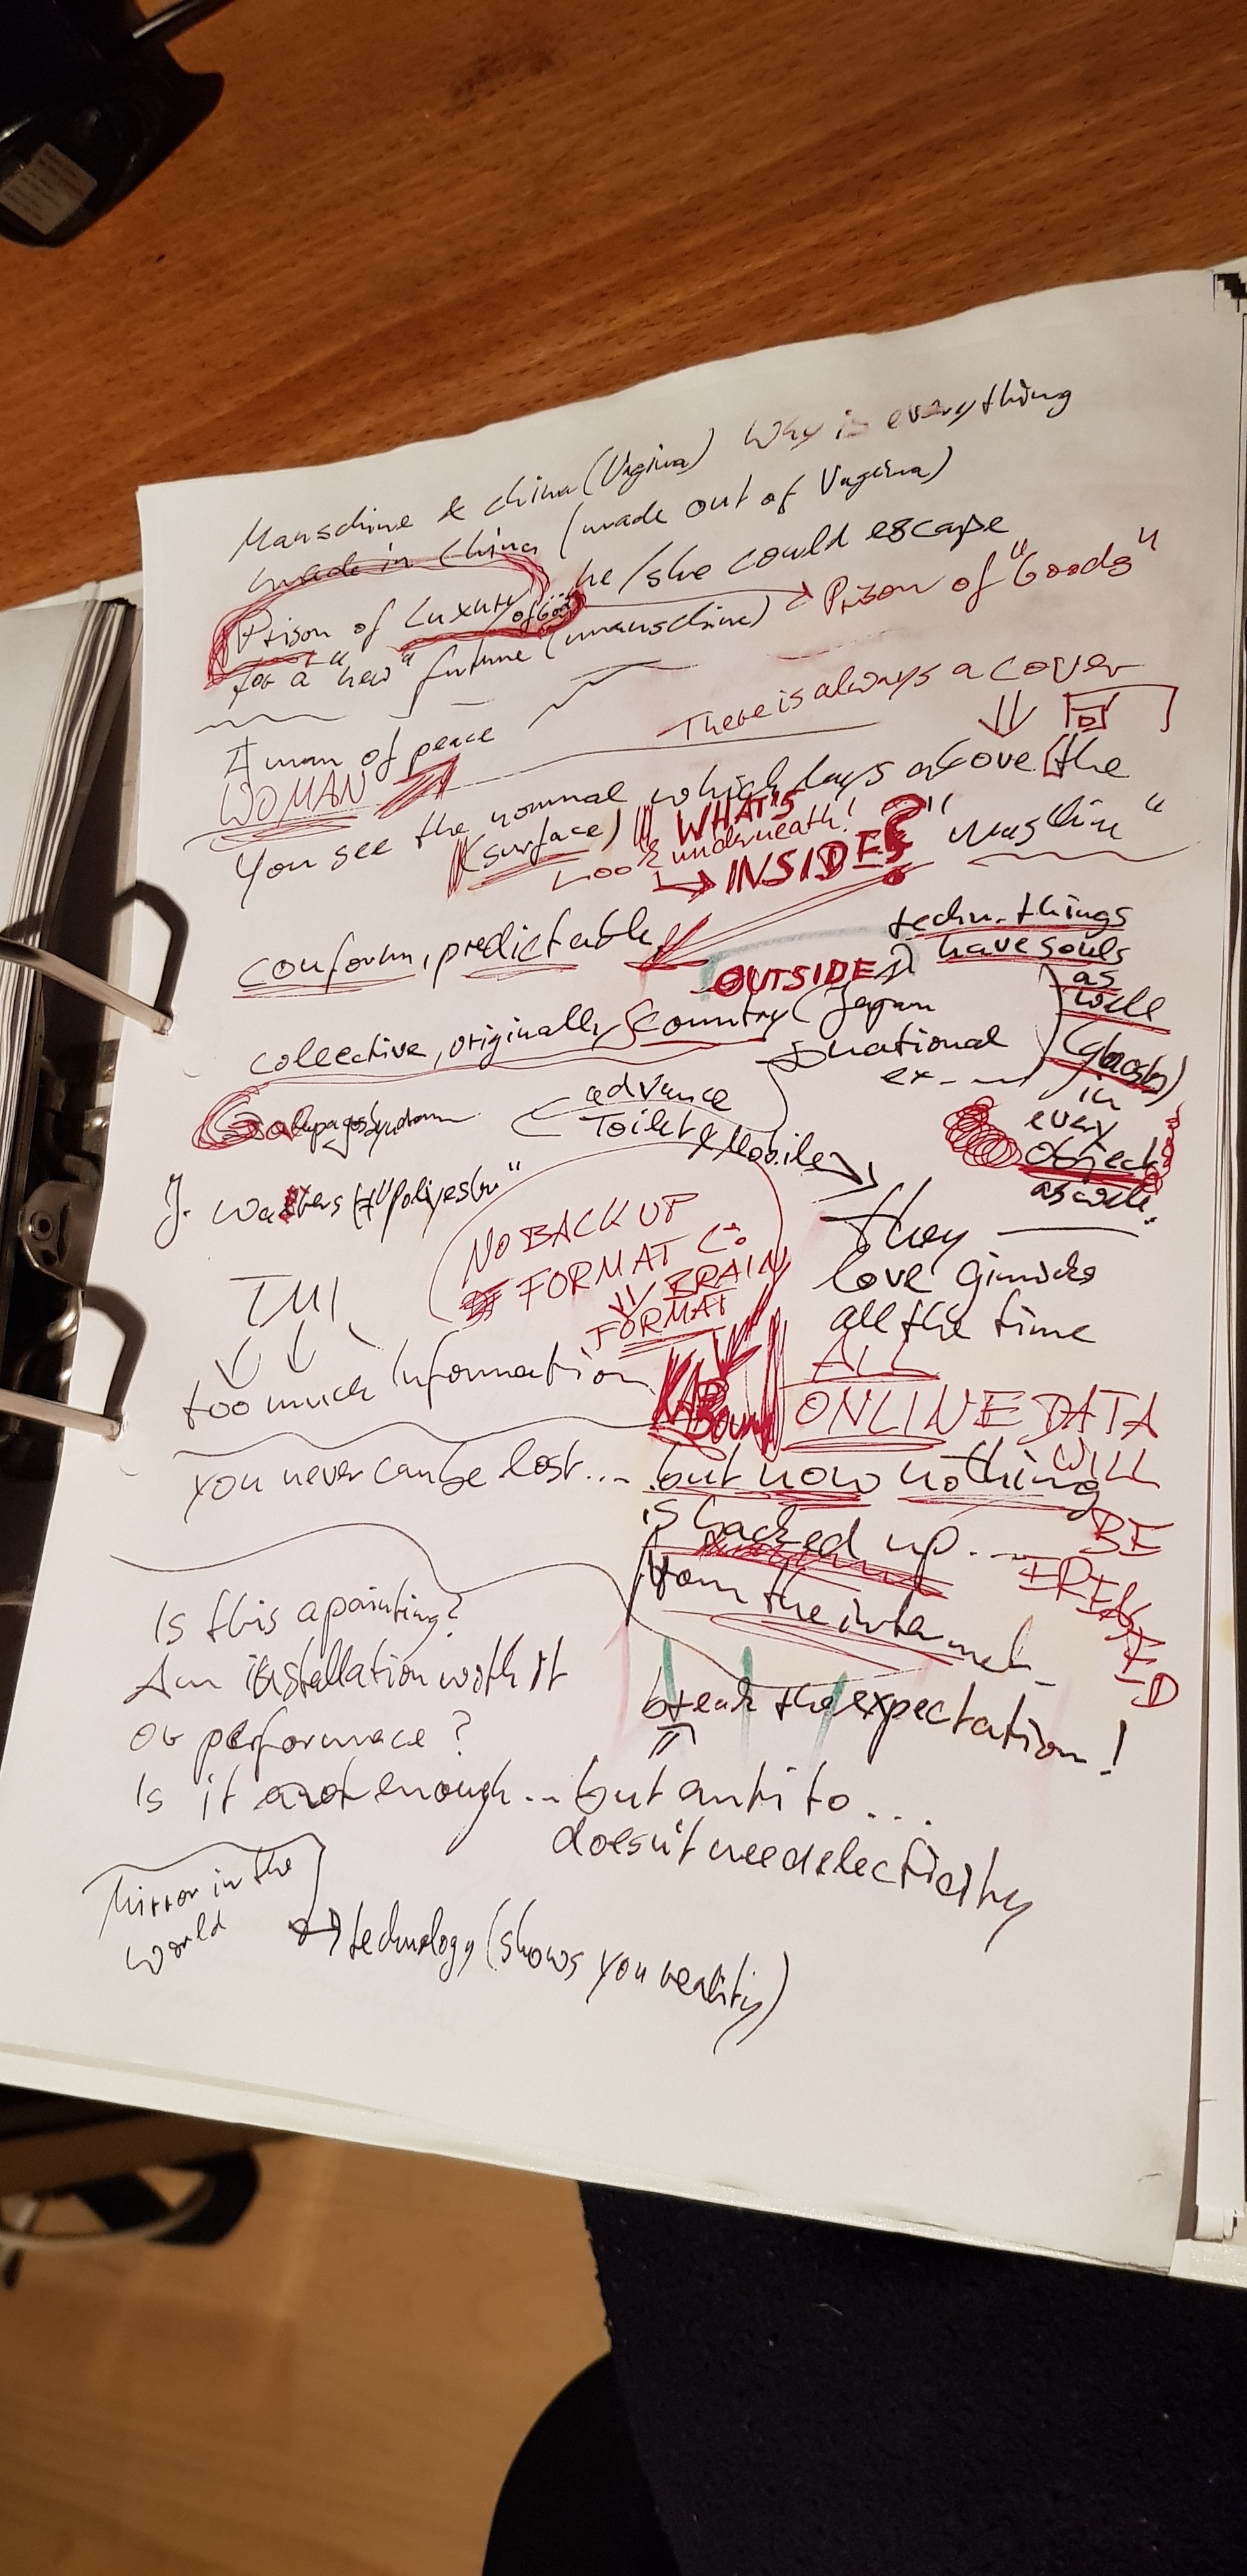 Manschine & China (Vagina) Why is everything
made in China (made out of Vagina)
Prison of Luxury/of Goods he/she could escape
→ Prison of "Goods"
for a "new" future (manschine)
There is always a cover
A man of peace
WOMAN
You see the nominal which lays above the
(surface) WHAT'S
Look underneath!
→ INSIDE?
conform, predictable,
OUTSIDE
techn. things
have souls
as
well
(ghosts)
in
every
object
as well.
collective, originally country (Japan
national
ex
Galapagos Syndrom
advance
Toilet & Mobile
J. Waters "Polyester"
NO BACK UP
FORMAT C:
BRAIN
FORMAT
They
love gimicks
all the time
TMI
too much Information
ALL
ONLINE DATA
WILL
BE
ERESED
you never can be lost.... but now nothing
is backed up...
from the internet
Is this a painting?
An installation with it
or performace?
break the expectation!
Is it not enough... but anti to...
doesn't need electicity
Mirror in the
world
→ technology (shows you reality)